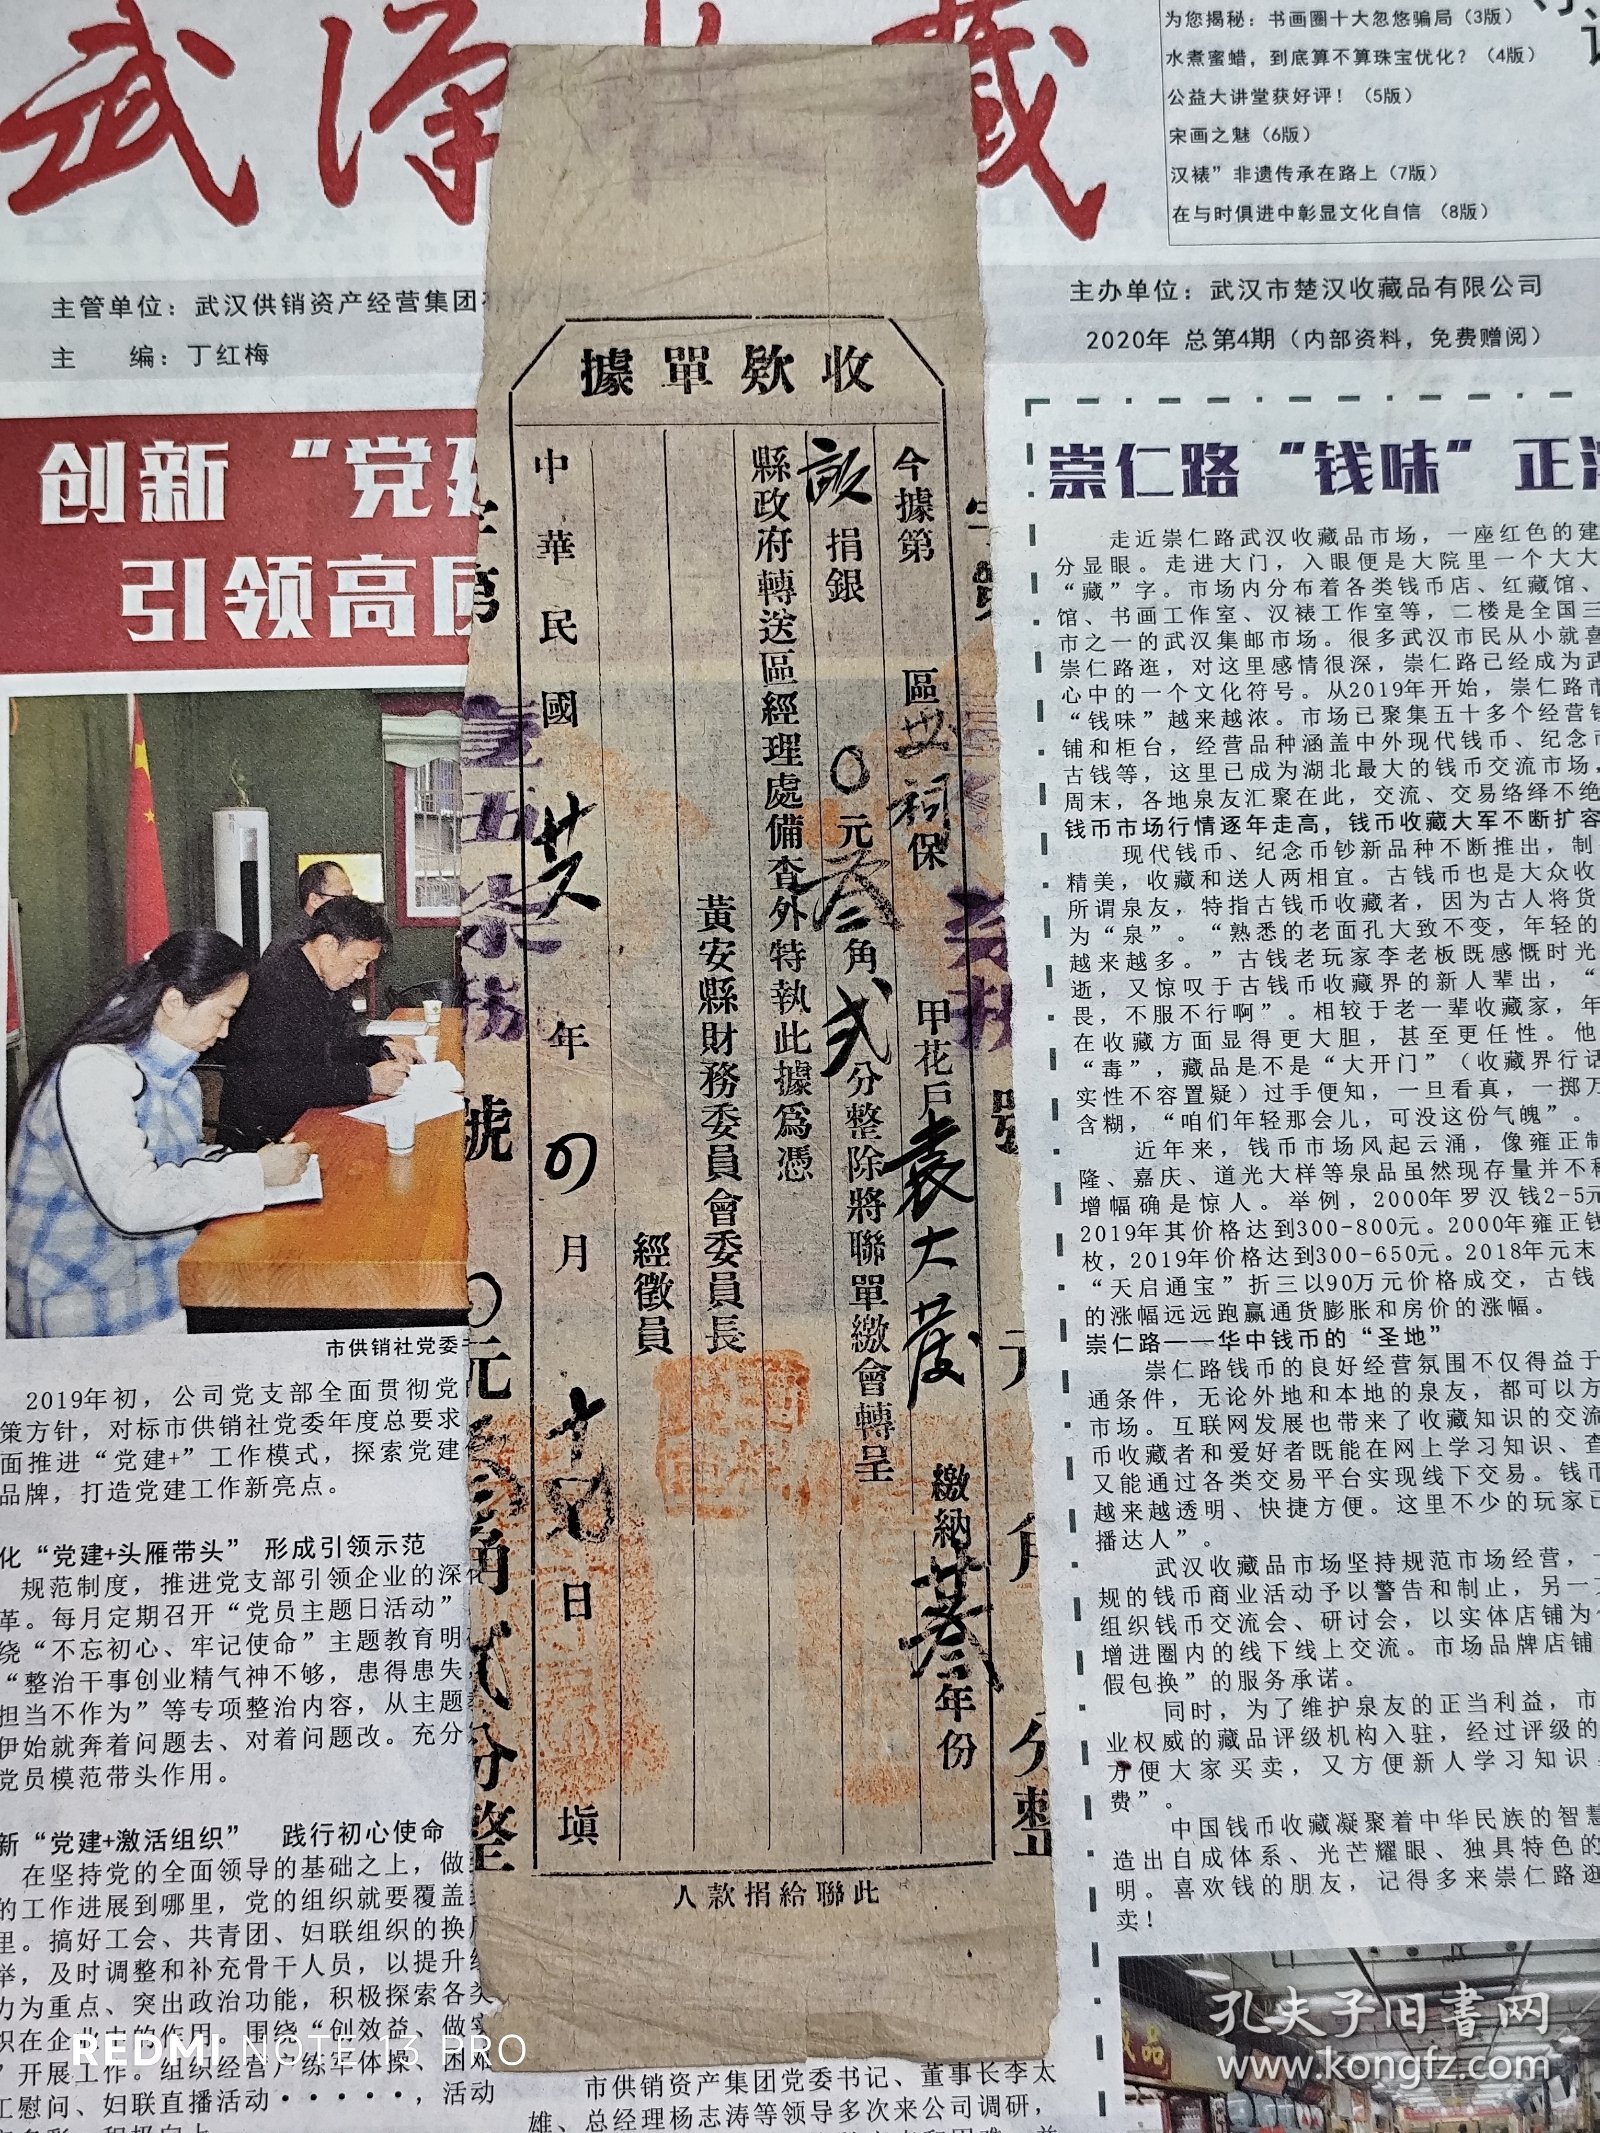 武汉收藏
为您揭秘：书画圈十大忽悠骗局（3版）
水煮蜜蜡，到底算不算珠宝优化？（4版）
公益大讲堂获好评！（5版）
宋画之魅（6版）
汉裱”非遗传承在路上（7版）
在与时俱进中彰显文化自信（8版）
主管单位：武汉供销资产经营集团
主 编：丁红梅
主办单位：武汉市楚汉收藏品有限公司
2020年 总第4期（内部资料，免费赠阅）
创新“党建
引领高质
市供销社党委
2019年初，公司党支部全面贯彻党
策方针，对标市供销社党委年度总要求
面推进“党建+”工作模式，探索党建
品牌，打造党建工作新亮点。
化“党建+头雁带头” 形成引领示范
规范制度，推进党支部引领企业的深
革。每月定期召开“党员主题日活动”
绕“不忘初心、牢记使命”主题教育明
“整治干事创业精气神不够，患得患失
担当不作为”等专项整治内容，从主题
伊始就奔着问题去、对着问题改。充分
党员模范带头作用。
新“党建+激活组织” 践行初心使命
在坚持党的全面领导的基础之上，做
的工作进展到哪里，党的组织就要覆盖
里。搞好工会、共青团、妇联组织的换
举，及时调整和补充骨干人员，以提升
力为重点、突出政治功能，积极探索各类
织在企业中的作用。围绕“创效益、做实
”开展工作。组织经营户练军体操、困难
工慰问、妇联直播活动······，活动
收款單據
今據第 區 祠保 甲花戶袁大發 繳納 叁年份
畝捐銀 〇元叁角弍分整除將聯單繳會轉呈
縣政府轉送區經理處備查外特執此據爲憑
黃安縣財務委員會委員長
經徵員
中華民國 廿八 年 四 月 十 日 填
字第 壹 五 財務 號 〇元叁角弍分整
號 元 角 分整
此聯給捐款人
崇仁路“钱味”正
走近崇仁路武汉收藏品市场，一座红色的建
分显眼。走进大门，入眼便是大院里一个大大
“藏”字。市场内分布着各类钱币店、红藏馆、
馆、书画工作室、汉裱工作室等，二楼是全国三
市之一的武汉集邮市场。很多武汉市民从小就喜
崇仁路逛，对这里感情很深，崇仁路已经成为武
心中的一个文化符号。从2019年开始，崇仁路市
“钱味”越来越浓。市场已聚集五十多个经营钱
铺和柜台，经营品种涵盖中外现代钱币、纪念币
古钱等，这里已成为湖北最大的钱币交流市场，
周末，各地泉友汇聚在此，交流、交易络绎不绝
钱币市场行情逐年走高，钱币收藏大军不断扩容
现代钱币、纪念币钞新品种不断推出，制
精美，收藏和送人两相宜。古钱币也是大众收
所谓泉友，特指古钱币收藏者，因为古人将货
为“泉”。“熟悉的老面孔大致不变，年轻的
越来越多。”古钱老玩家李老板既感慨时光
逝，又惊叹于古钱币收藏界的新人辈出，“
畏，不服不行啊”。相较于老一辈收藏家，年
在收藏方面显得更大胆，甚至更任性。他
“毒”，藏品是不是“大开门”（收藏界行话
实性不容置疑）过手便知，一旦看真，一掷万
含糊，“咱们年轻那会儿，可没这份气魄”。
近年来，钱币市场风起云涌，像雍正制
隆、嘉庆、道光大样等泉品虽然现存量并不稀
增幅确是惊人。举例，2000年罗汉钱2-5元
2019年其价格达到300-800元。2000年雍正钱
枚，2019年价格达到300-650元。2018年元末
“天启通宝”折三以90万元价格成交，古钱
的涨幅远远跑赢通货膨胀和房价的涨幅。
崇仁路——华中钱币的“圣地”
崇仁路钱币的良好经营氛围不仅得益于
通条件，无论外地和本地的泉友，都可以方
市场。互联网发展也带来了收藏知识的交流
币收藏者和爱好者既能在网上学习知识、查
又能通过各类交易平台实现线下交易。钱币
越来越透明、快捷方便。这里不少的玩家已
播达人”。
武汉收藏品市场坚持规范市场经营，
规的钱币商业活动予以警告和制止，另一
组织钱币交流会、研讨会，以实体店铺为
增进圈内的线下线上交流。市场品牌店铺
假包换”的服务承诺。
同时，为了维护泉友的正当利益，市
业权威的藏品评级机构入驻，经过评级的
方便大家买卖，又方便新人学习知识
费”。
中国钱币收藏凝聚着中华民族的智慧
造出自成体系、光芒耀眼、独具特色的
明。喜欢钱的朋友，记得多来崇仁路逛
卖！
市供销资产集团党委书记、董事长李太
雄、总经理杨志涛等领导多次来公司调研，
REDMI NOTE 13 PRO
孔夫子旧书网
www.kongfz.com